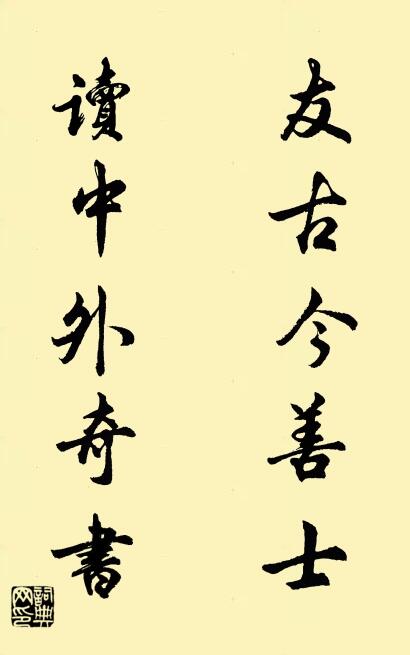 友古今善士
讀中外奇書
詞典網印